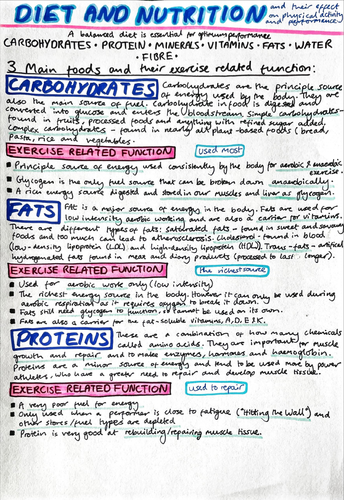 DIET AND NUTRITION and their effect on physical activity and performance
A balanced diet is essential for optimum performance
CARBOHYDRATES • PROTEIN • MINERALS • VITAMINS • FATS • WATER
• FIBRE •
3 Main foods and their exercise related function:
CARBOHYDRATES Carbohydrates are the principle source
of energy used by the body. They are
also the main source of fuel. Carbohydrate in food is digested and
converted into glucose and enters the bloodstream. Simple carbohydrates -
found in fruits, processed foods and anything with refined sugar added.
Complex carbohydrates - found in nearly all plant-based foods (bread,
pasta, rice and vegetables.
EXERCISE RELATED FUNCTION used most
Principle source of energy used consistently by the body for aerobic & anaerobic
exercise.
Glycogen is the only fuel source that can be broken down anaerobically.
A rich energy source digested and stored in our muscles and liver as glycogen.
FATS Fat is a major source of energy in the body. Fats are used for
low intensity aerobic working and are also a carrier for vitamins.
There are different types of fats: Saturated fats - found in sweet and savoury
foods and too much can lead to atherosclerosis. Cholesterol - found in blood
(low-density lipoprotein (LDL) and high-density lipoprotein (HDL)). Trans-fats - artificial
hydrogenated fats found in meat and diary products (processed to last longer).
EXERCISE RELATED FUNCTION the richest source
Used for aerobic work only (low intensity)
The richest energy source in the body. However it can only be used during
aerobic respiration as it requires oxygen to break it down.
Fats still need glycogen to function, so cannot be used on its own.
Fats are also a carrier for the fat-soluble vitamins, A, D, E & K.
PROTEINS These are a combination of how many chemicals
called amino acids. They are important for muscle
growth and repair and to make enzymes, hormones and haemoglobin.
Proteins are a minor source of energy and tend to be used more by power
athletes, who have a greater need to repair and develop muscle tissue.
EXERCISE RELATED FUNCTION used to repair
A very poor fuel for energy
Only used when a performer is close to fatigue ("Hitting the Wall") and
other stores/fuel types are depleted
Protein is very good at rebuilding/repairing muscle tissue.